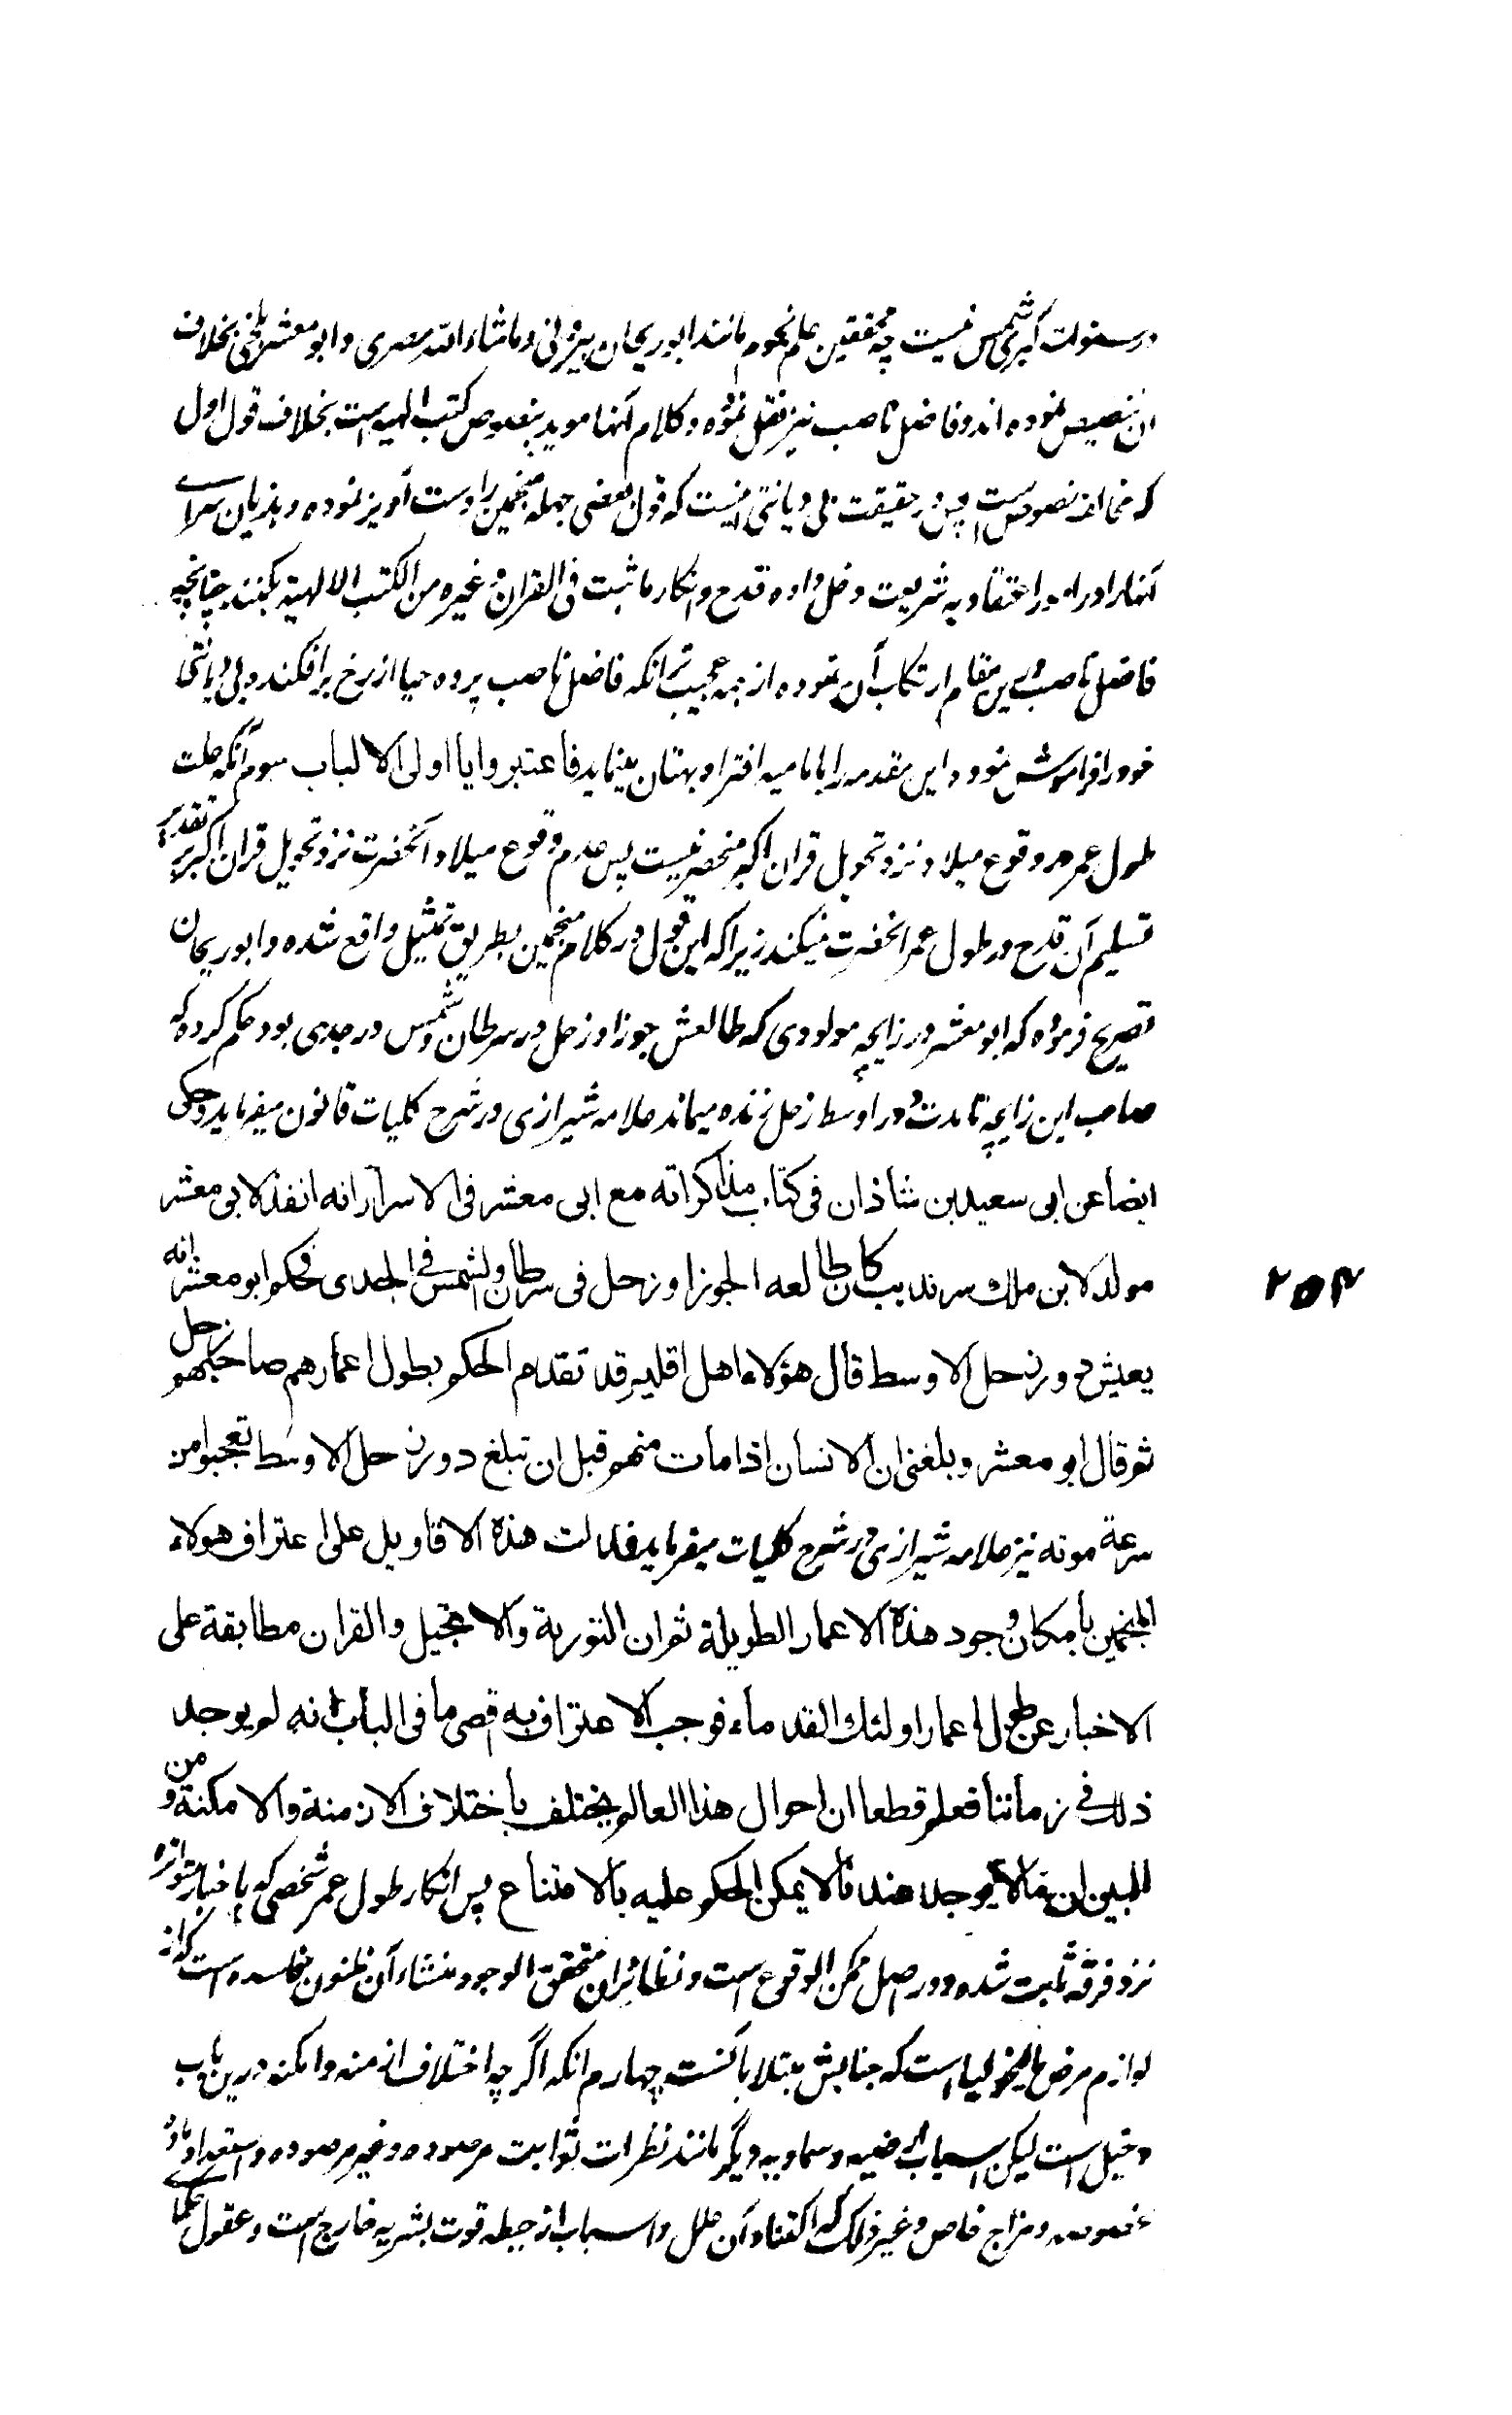 در سنوات کبری شمس نیست چه محققین علم نجوم مانند ابوریحان بیرونی و ماشاء الله مصری و ابو معشر بلخی بخلاف
آن تنصیص نموده اند و فاضل ناصب نیز نقل نموده و کلام آنها موید بنصوص کتب الهیه است بخلاف قول اول
که مخالف نصوص است پس در حقیقت بی دیانتی اینست که قول بعضی جهله منجمین را دست آویز نموده و هذیان سرائے
آنها را در امور اعتقادیه شریعت دخل داده قدح و انکار ما ثبت فی القران و غیره من الکتب الالهیة بکنند چنانچه
فاضل ناصب درین مقام ارتکاب آن نموده از همه عجیب تر انکه فاضل ناصب پرده حیا از رخ برافکنده بی دیانتی
خود را فراموش نمود و این مقدمه را بامامیه افترا و بهتان مینماید فاعتبروا یا اولی الالباب سوم آنکه علت
طول عمر در وقوع میلاد نزد تحویل قران اکبر منحصر نیست پس عدم وقوع میلاد آنحضرت نزد تحویل قران اکبر بر تقدیر
تسلیم آن قدح در طول عمر آنحضرت نمیکند زیرا که این قول در کلام منجمین بطریق تمثیل واقع شده و ابوریحان
تصریح فرموده که ابو معشر در زایچه مولودی که طالعش جوزا و زحل در سرطان و شمس در جدی بود حکم کرده که
صاحب این زایچه تا مدت دور اوسط زحل زنده میماند علامه شیرازی در شرح کلیات قانون میفرماید و حکی
ایضا عن ابی سعید بن شاذان فی کتاب مذاکراته مع ابی معشر فی الاسرار انه انفذ لابی معشر
مولد لابن ملك سرندیب کان طالعه الجوزا و زحل فی سرطان والشمس فی الجدی فحکم ابو معشر انه
یعیش دور زحل الاوسط قال هؤلاء اهل اقلیم قد تقدم الحکم بطول اعمارهم صاحبهم زحل
ثم قال ابو معشر و بلغنی ان الانسان اذا مات منهم قبل ان تبلغ دور زحل الاوسط تعجبوا من
سرعة موته نیز علامه شیرازی در شرح کلیات میفرماید فدلت هذه الاقاویل علی اعتراف هولاء
المنجمین بامکان وجود هذه الاعمار الطویلة ثم ان التوریة والانجیل والقران مطابقة علی
الاخبار عن طول اعمار اولئك القدماء فوجب الاعتراف به اقصی ما فی الباب انه لم یوجد
ذلك فی زماننا فعلم قطعا ان احوال هذا العالم یختلف باختلاف الازمنة والامکنة و من
البین ان مالا یوجد عندنا لا یمکن الحکم علیه بالامتناع پس انکار طول عمر شخصی که باخبار متواتره
نزد فرقه ثابت شده و در اصل ممکن الوقوع است و نظائر آن متحقق الوجود منشاء آن ظنون فاسده است که از
لوازم مرض مالیخولیا است که جنابش مبتلا بآنست چهارم انکه اگرچه اختلاف ازمنه و امکنه درین باب
دخیل است لیکن اسباب ارضیه و سماویه دیگر مانند نظرات ثوابت مرصوده و غیر مرصوده و استعداد ماده
مخصوصه و مزاج خاص و غیر ذلک که اکتناه آن علل و اسباب از حیطه قوت بشریه خارج است و عقول حکمائے
۲۵۴